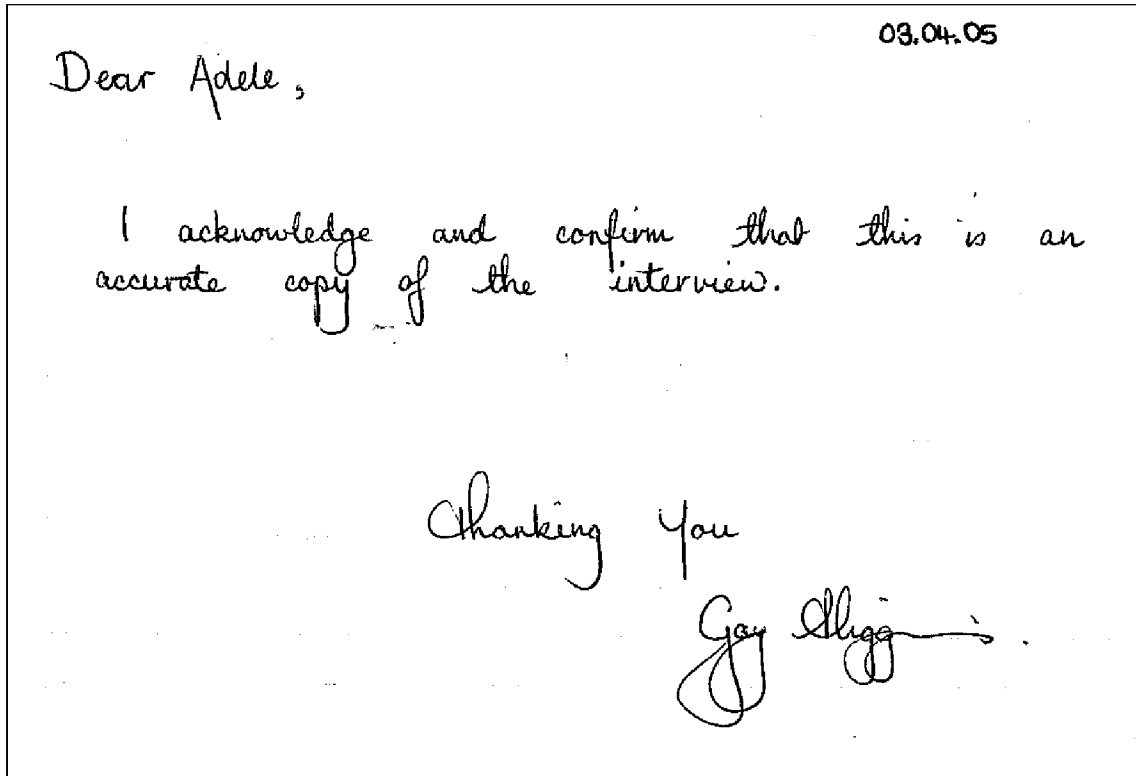 03.04.05
Dear Adele,
I acknowledge and confirm that this is an
accurate copy of the interview.
Thanking You
Gay